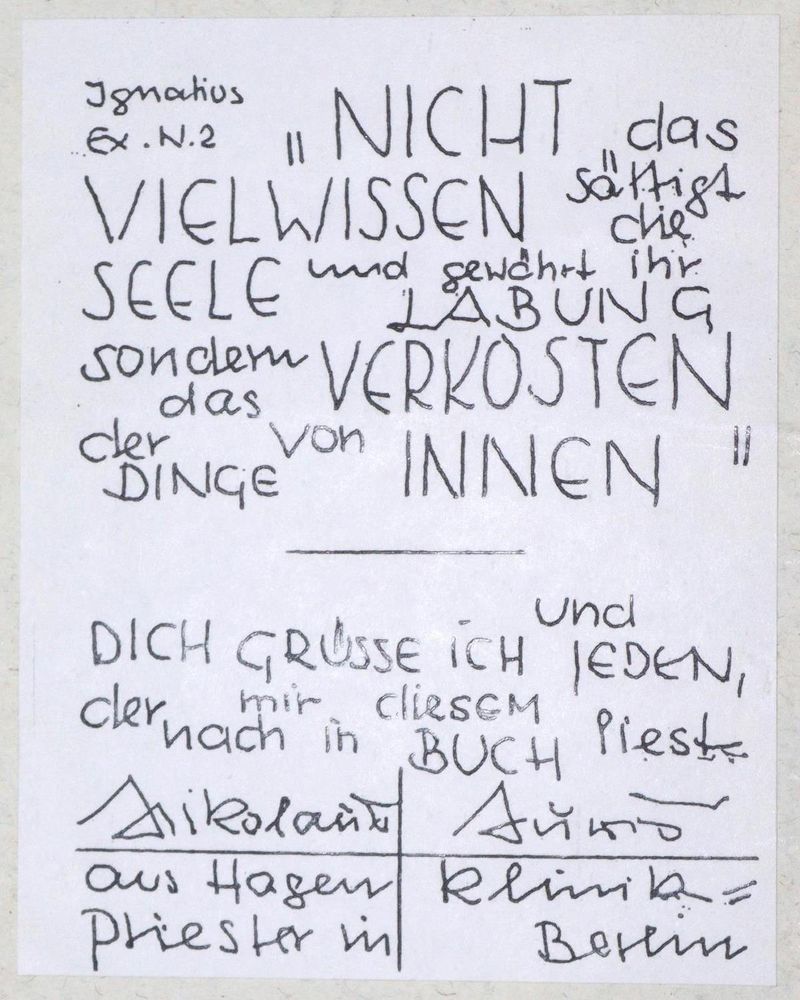 Ignatius
Ex. N. 2 „NICHT das
VIELWISSEN „sättigt
die
SEELE und gewährt ihr
LABUNG
sondern VERKOSTEN
das
der von INNEN"
DINGE
und
DICH GRÜSSE ICH JEDEN,
der mir diesem
nach in BUCH liest
Nikolaus
aus Hagen Klinik=
Priester in Berlin